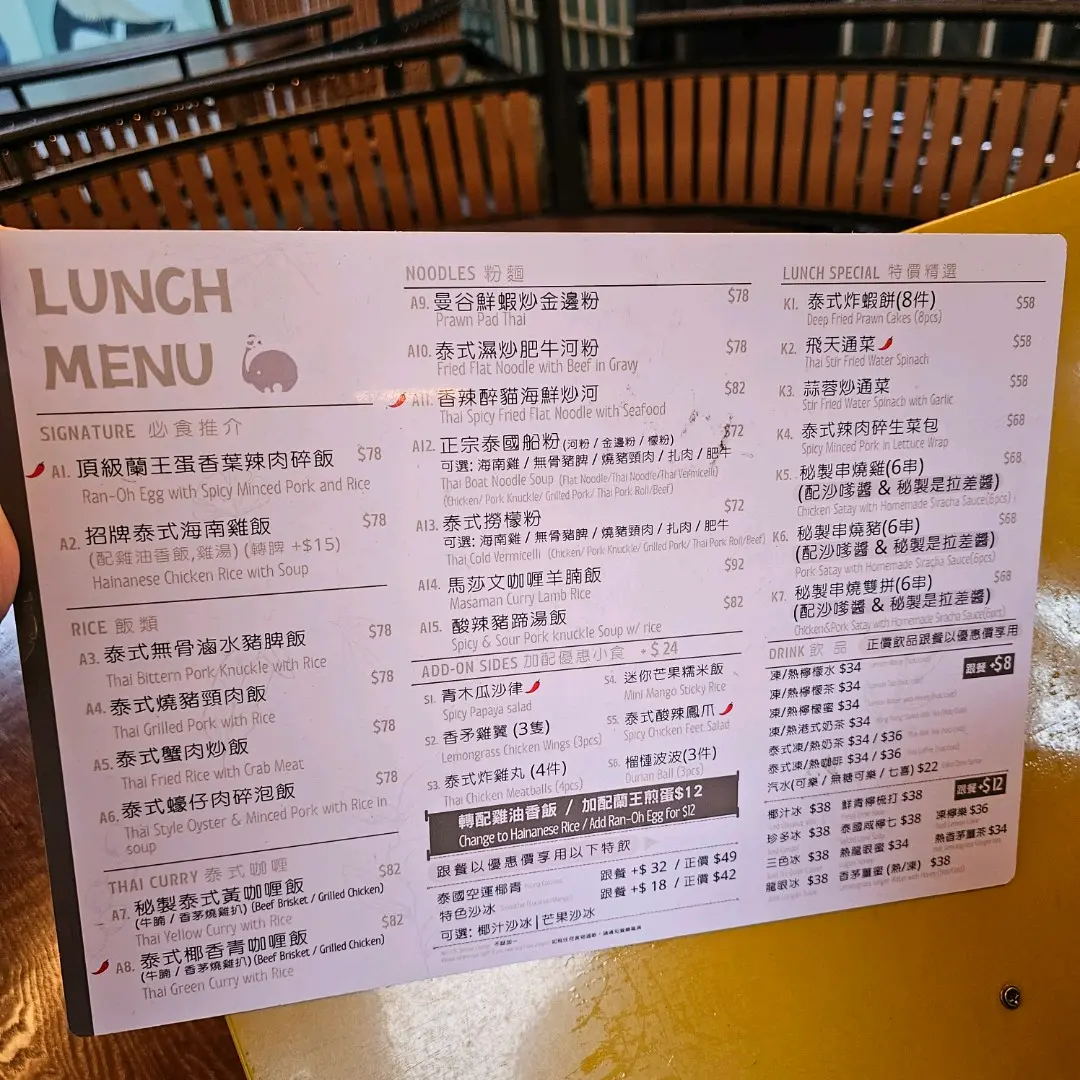 LUNCH
MENU
SIGNATURE 必食推介
A1. 頂級蘭王蛋香葉辣肉碎飯 $78
Ran-Oh Egg with Spicy Minced Pork and Rice
A2. 招牌泰式海南雞飯 $78
(配雞油香飯,雞湯) (轉髀 +$15)
Hainanese Chicken Rice with Soup
RICE 飯類
A3. 泰式無骨滷水豬脾飯 $78
Thai Bittern Pork Knuckle with Rice
A4. 泰式燒豬頸肉飯 $78
Thai Grilled Pork with Rice
A5. 泰式蟹肉炒飯 $78
Thai Fried Rice with Crab Meat
A6. 泰式蠔仔肉碎泡飯 $78
Thai Style Oyster & Minced Pork with Rice in
soup
THAI CURRY 泰式咖喱
A7. 秘製泰式黃咖喱飯 $82
(牛腩 / 香茅燒雞扒) (Beef Brisket / Grilled Chicken)
Thai Yellow Curry with Rice
A8. 泰式椰香青咖喱飯 $82
(牛腩 / 香茅燒雞扒) (Beef Brisket / Grilled Chicken)
Thai Green Curry with Rice
NOODLES 粉麵
A9. 曼谷鮮蝦炒金邊粉 $78
Prawn Pad Thai
A10. 泰式濕炒肥牛河粉 $78
Fried Flat Noodle with Beef in Gravy
A11. 香辣醉貓海鮮炒河 $82
Thai Spicy Fried Flat Noodle with Seafood
A12. 正宗泰國船粉 (河粉 / 金邊粉 / 檬粉) $72
可選: 海南雞 / 無骨豬脾 / 燒豬頸肉 / 扎肉 / 肥牛
Thai Boat Noodle Soup (Flat Noodle/Thai Noodle/Thai Vermicelli)
(Chicken/ Pork Knuckle/ Grilled Pork/ Thai Pork Roll/Beef)
A13. 泰式撈檬粉 $72
可選: 海南雞 / 無骨豬脾 / 燒豬頸肉 / 扎肉 / 肥牛
Thai Cold Vermicelli (Chicken/ Pork Knuckle/ Grilled Pork/ Thai Pork Roll/Beef)
A14. 馬莎文咖喱羊腩飯 $92
Masaman Curry Lamb Rice
A15. 酸辣豬蹄湯飯 $82
Spicy & Sour Pork knuckle Soup w/ rice
ADD-ON SIDES 加配優惠小食 + $24
S1. 青木瓜沙律
Spicy Papaya salad
S2. 香茅雞翼 (3隻)
Lemongrass Chicken Wings (3pcs)
S3. 泰式炸雞丸 (4件)
Thai Chicken Meatballs (4pcs)
S4. 迷你芒果糯米飯
Mini Mango Sticky Rice
S5. 泰式酸辣鳳爪
Spicy Chicken Feet Salad
S6. 榴槤波波(3件)
Durian Ball (3pcs)
轉配雞油香飯 / 加配蘭王煎蛋$12
Change to Hainanese Rice / Add Ran-Oh Egg for $12
跟餐以優惠價享用以下特飲
泰國空運椰青 跟餐 +$ 32 / 正價 $49
特色沙冰 跟餐 +$ 18 / 正價 $42
可選: 椰汁沙冰 | 芒果沙冰
LUNCH SPECIAL 特價精選
K1. 泰式炸蝦餅(8件) $58
Deep Fried Prawn Cakes (8pcs)
K2. 飛天通菜 $58
Thai Stir Fried Water Spinach
K3. 蒜蓉炒通菜 $58
Stir Fried Water Spinach with Garlic
K4. 泰式辣肉碎生菜包 $68
Spicy Minced Pork in Lettuce Wrap
K5. 秘製串燒雞(6串) $68
(配沙嗲醬 & 秘製是拉差醬)
Chicken Satay with Homemade Siracha Sauce(6pcs)
K6. 秘製串燒豬(6串) $68
(配沙嗲醬 & 秘製是拉差醬)
Pork Satay with Homemade Siracha Sauce(6pcs)
K7. 秘製串燒雙拼(6串) $68
(配沙嗲醬 & 秘製是拉差醬)
Chicken&Pork Satay with Homemade Siracha Sauce(6pcs)
DRINK 飲品 正價飲品跟餐以優惠價享用
跟餐 +$8
凍/熱檸檬水 $34
凍/熱檸檬茶 $34
凍/熱檸檬蜜 $34
凍/熱港式奶茶 $34
泰式凍/熱奶茶 $34 / $36
泰式凍/熱咖啡 $34 / $36
汽水(可樂 / 無糖可樂 / 七喜) $22
跟餐 +$12
椰汁冰 $38 鮮青檸梳打 $38 凍檸樂 $36
珍多冰 $38 泰國咸檸七 $38 熱香茅薑茶 $34
三色冰 $38 熱龍眼蜜 $34
龍眼冰 $38 香茅薑蜜 (熱/凍) $38